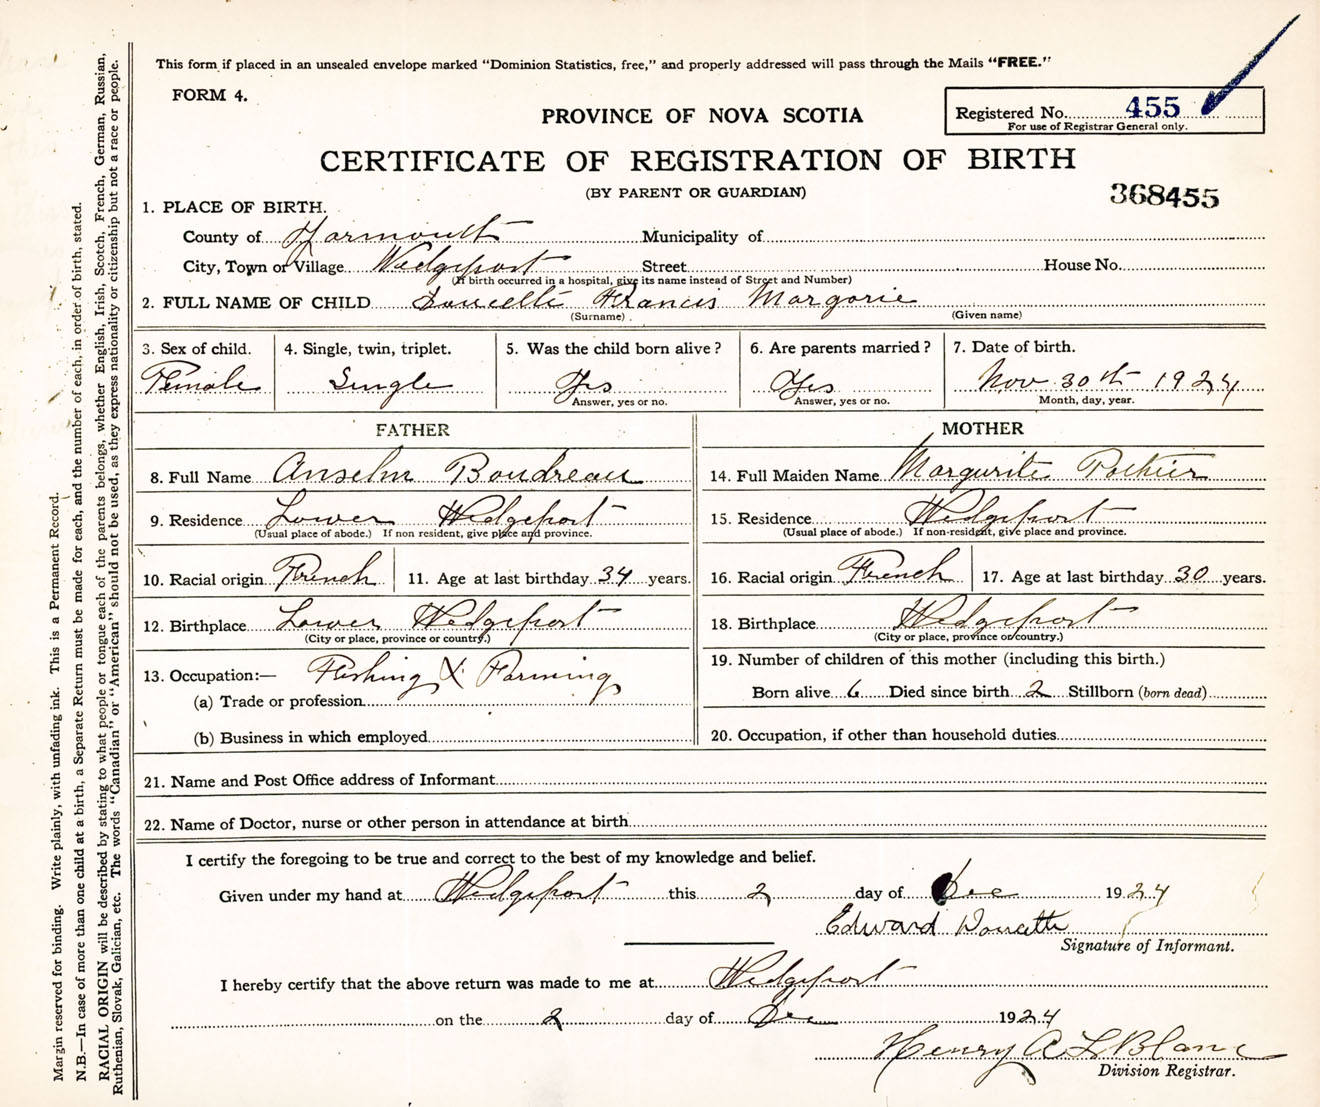 This form if placed in an unsealed envelope marked "Dominion Statistics, free," and properly addressed will pass through the Mails "FREE."
FORM 4.
Registered No. 455
For use of Registrar General only.
PROVINCE OF NOVA SCOTIA
CERTIFICATE OF REGISTRATION OF BIRTH
(BY PARENT OR GUARDIAN)
368455
1. PLACE OF BIRTH.
County of Yarmouth Municipality of
City, Town or Village Wedgeport Street House No.
(If birth occurred in a hospital, give its name instead of Street and Number)
2. FULL NAME OF CHILD Doucette Francis Margorie
(Surname) (Given name)
3. Sex of child. 4. Single, twin, triplet. 5. Was the child born alive? 6. Are parents married? 7. Date of birth.
Female Single Yes Yes Nov 30th 1924
Answer, yes or no. Answer, yes or no. Month, day, year.
FATHER MOTHER
8. Full Name Anselm Boudreau 14. Full Maiden Name Margurite Pothier
9. Residence Lower Wedgeport 15. Residence Wedgeport
(Usual place of abode.) If non resident, give place and province. (Usual place of abode.) If non-resident, give place and province.
10. Racial origin French 11. Age at last birthday 34 years. 16. Racial origin French 17. Age at last birthday 30 years.
12. Birthplace Lower Wedgeport 18. Birthplace Wedgeport
(City or place, province or country.) (City or place, province or country.)
13. Occupation:— Fishing & Farming 19. Number of children of this mother (including this birth.)
(a) Trade or profession Born alive 6 Died since birth 2 Stillborn (born dead)
(b) Business in which employed 20. Occupation, if other than household duties
21. Name and Post Office address of Informant
22. Name of Doctor, nurse or other person in attendance at birth
I certify the foregoing to be true and correct to the best of my knowledge and belief.
Given under my hand at Wedgeport this 2 day of Dec 1924
Edward Doucette
Signature of Informant.
I hereby certify that the above return was made to me at Wedgeport
on the 2 day of Dec 1924
Henry A LeBlanc
Division Registrar.
Margin reserved for binding. Write plainly, with unfading ink. This is a Permanent Record.
N.B.—In case of more than one child at a birth, a Separate Return must be made for each, and the number of each, in order of birth, stated.
RACIAL ORIGIN will be described by stating to what people or tongue each of the parents belongs, whether English, Irish, Scotch, French, German, Russian,
Ruthenian, Slovak, Galician, etc. The words "Canadian" or "American" should not be used, as they express nationality or citizenship but not a race or people.